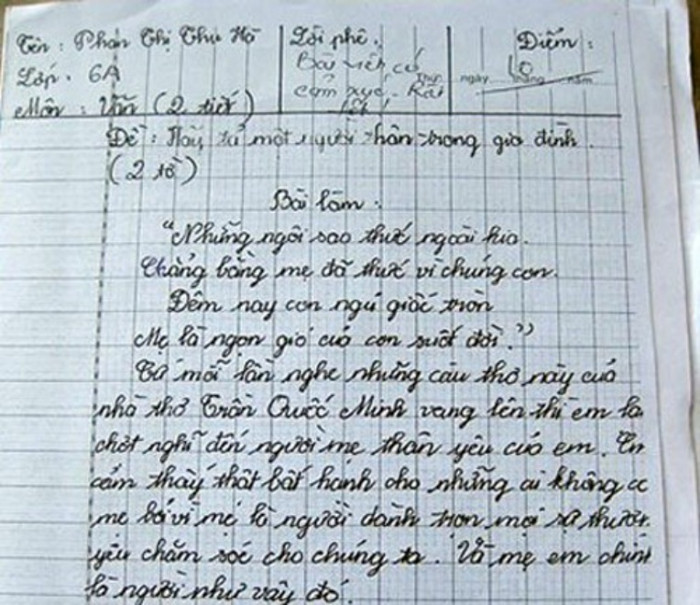 Tên : Phan Thị Thu Hà
Lớp : 6A
Môn : Văn (2 tiết)
Lời phê :
Bài viết có
cảm xúc. Rất
tốt!
Điểm :
10
ngày tháng năm
Đề : Hãy tả một người thân trong gia đình.
(2 tờ)
Bài làm :
"Những ngôi sao thức ngoài kia.
Chẳng bằng mẹ đã thức vì chúng con.
Đêm nay con ngủ giấc tròn
Mẹ là ngọn gió của con suốt đời."
Cứ mỗi lần nghe những câu thơ này của
nhà thơ Trần Quốc Minh vang lên thì em lại
chợt nghĩ đến người mẹ thân yêu của em. Em
cảm thấy thật bất hạnh cho những ai không có
mẹ bởi vì mẹ là người dành trọn mọi sự thương
yêu chăm sóc cho chúng ta. Và mẹ em chính
là người như vậy đó.